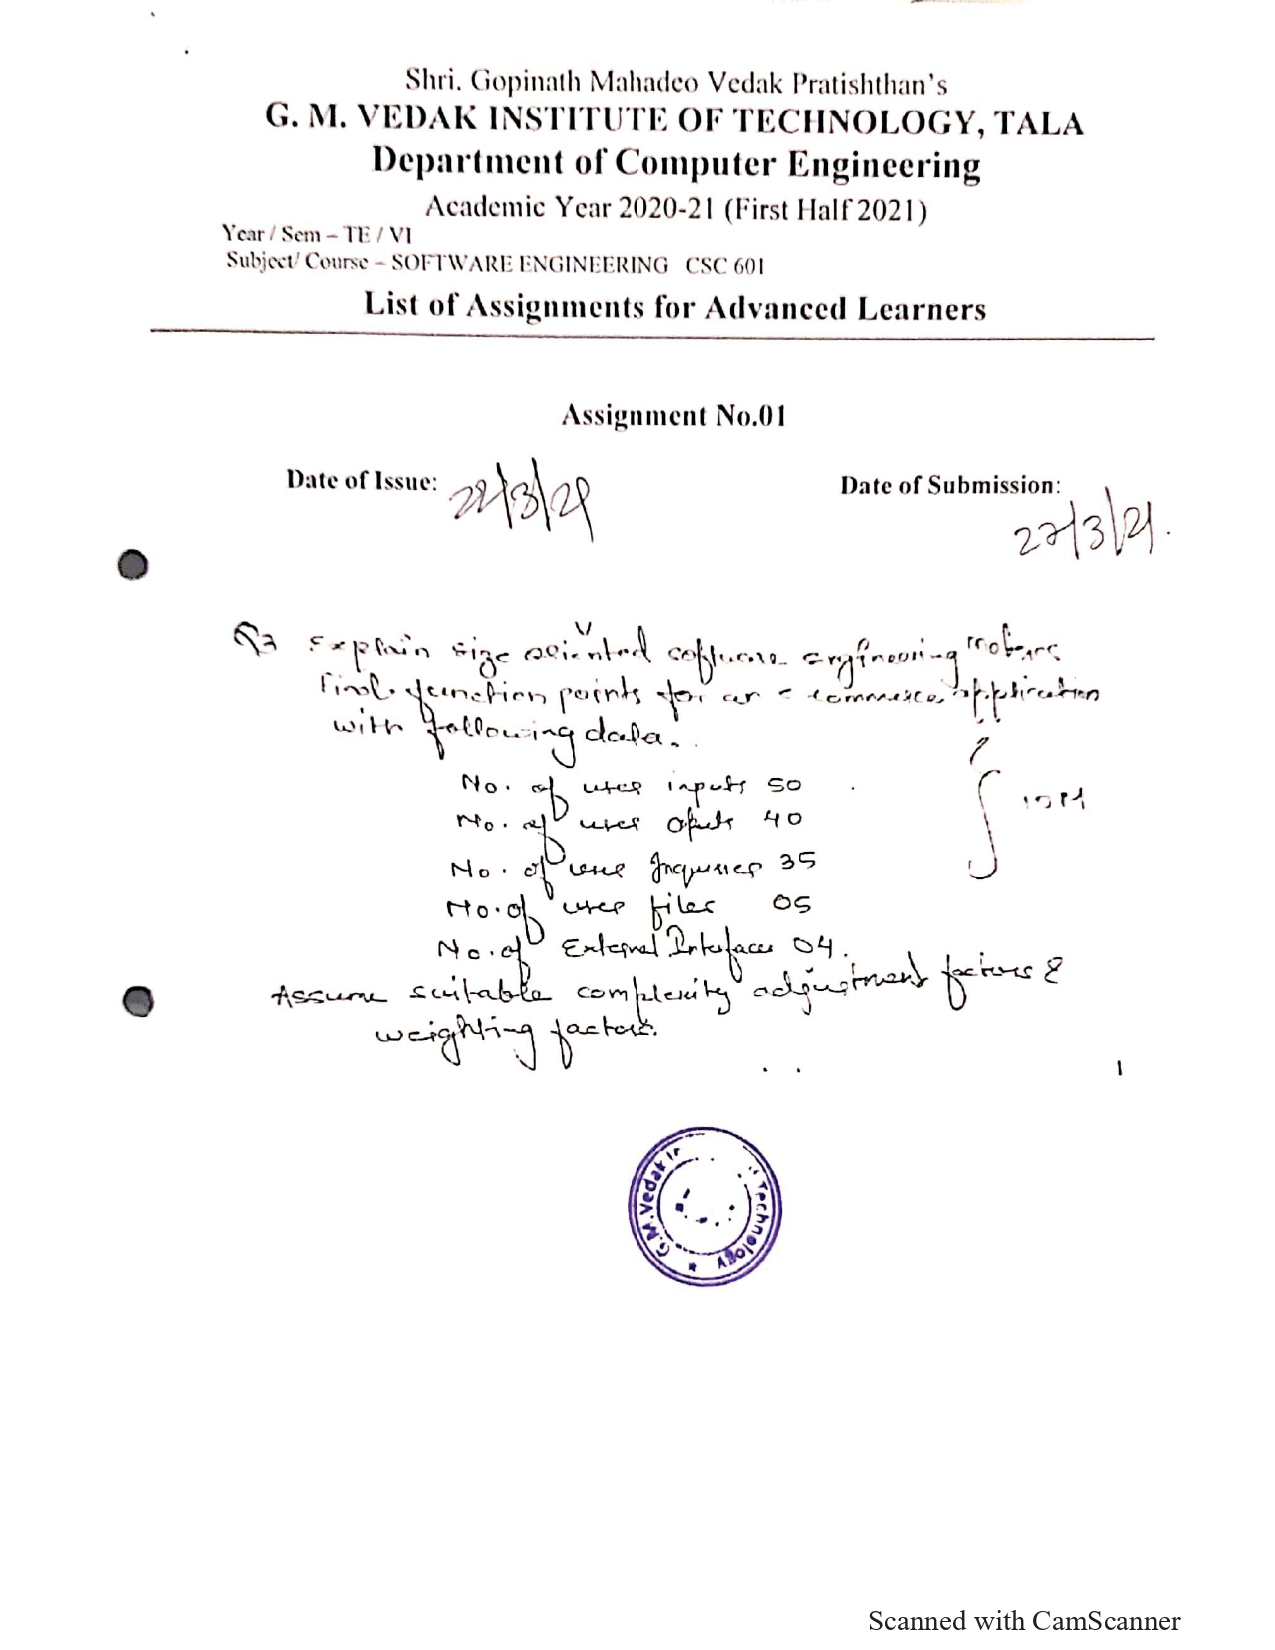 Shri. Gopinath Mahadeo Vedak Pratishthan's
G. M. VEDAK INSTITUTE OF TECHNOLOGY, TALA
Department of Computer Engineering
Academic Year 2020-21 (First Half 2021)
Year / Sem – TE / VI
Subject/ Course – SOFTWARE ENGINEERING CSC 601
List of Assignments for Advanced Learners
Assignment No.01
Date of Issue: /3/21
Date of Submission:
27/3/21.
Explain size oriented software engineering
Find function points for an e commerce application
with following data.
No. of user inputs 50
No. of user 40
No. of user Inquiries 35
No. of user files 05
No. of External Interfaces 04.
Assume suitable complexity adjustment factors &
weighting factors.
1
G.M.Vedak Technology
Scanned with CamScanner